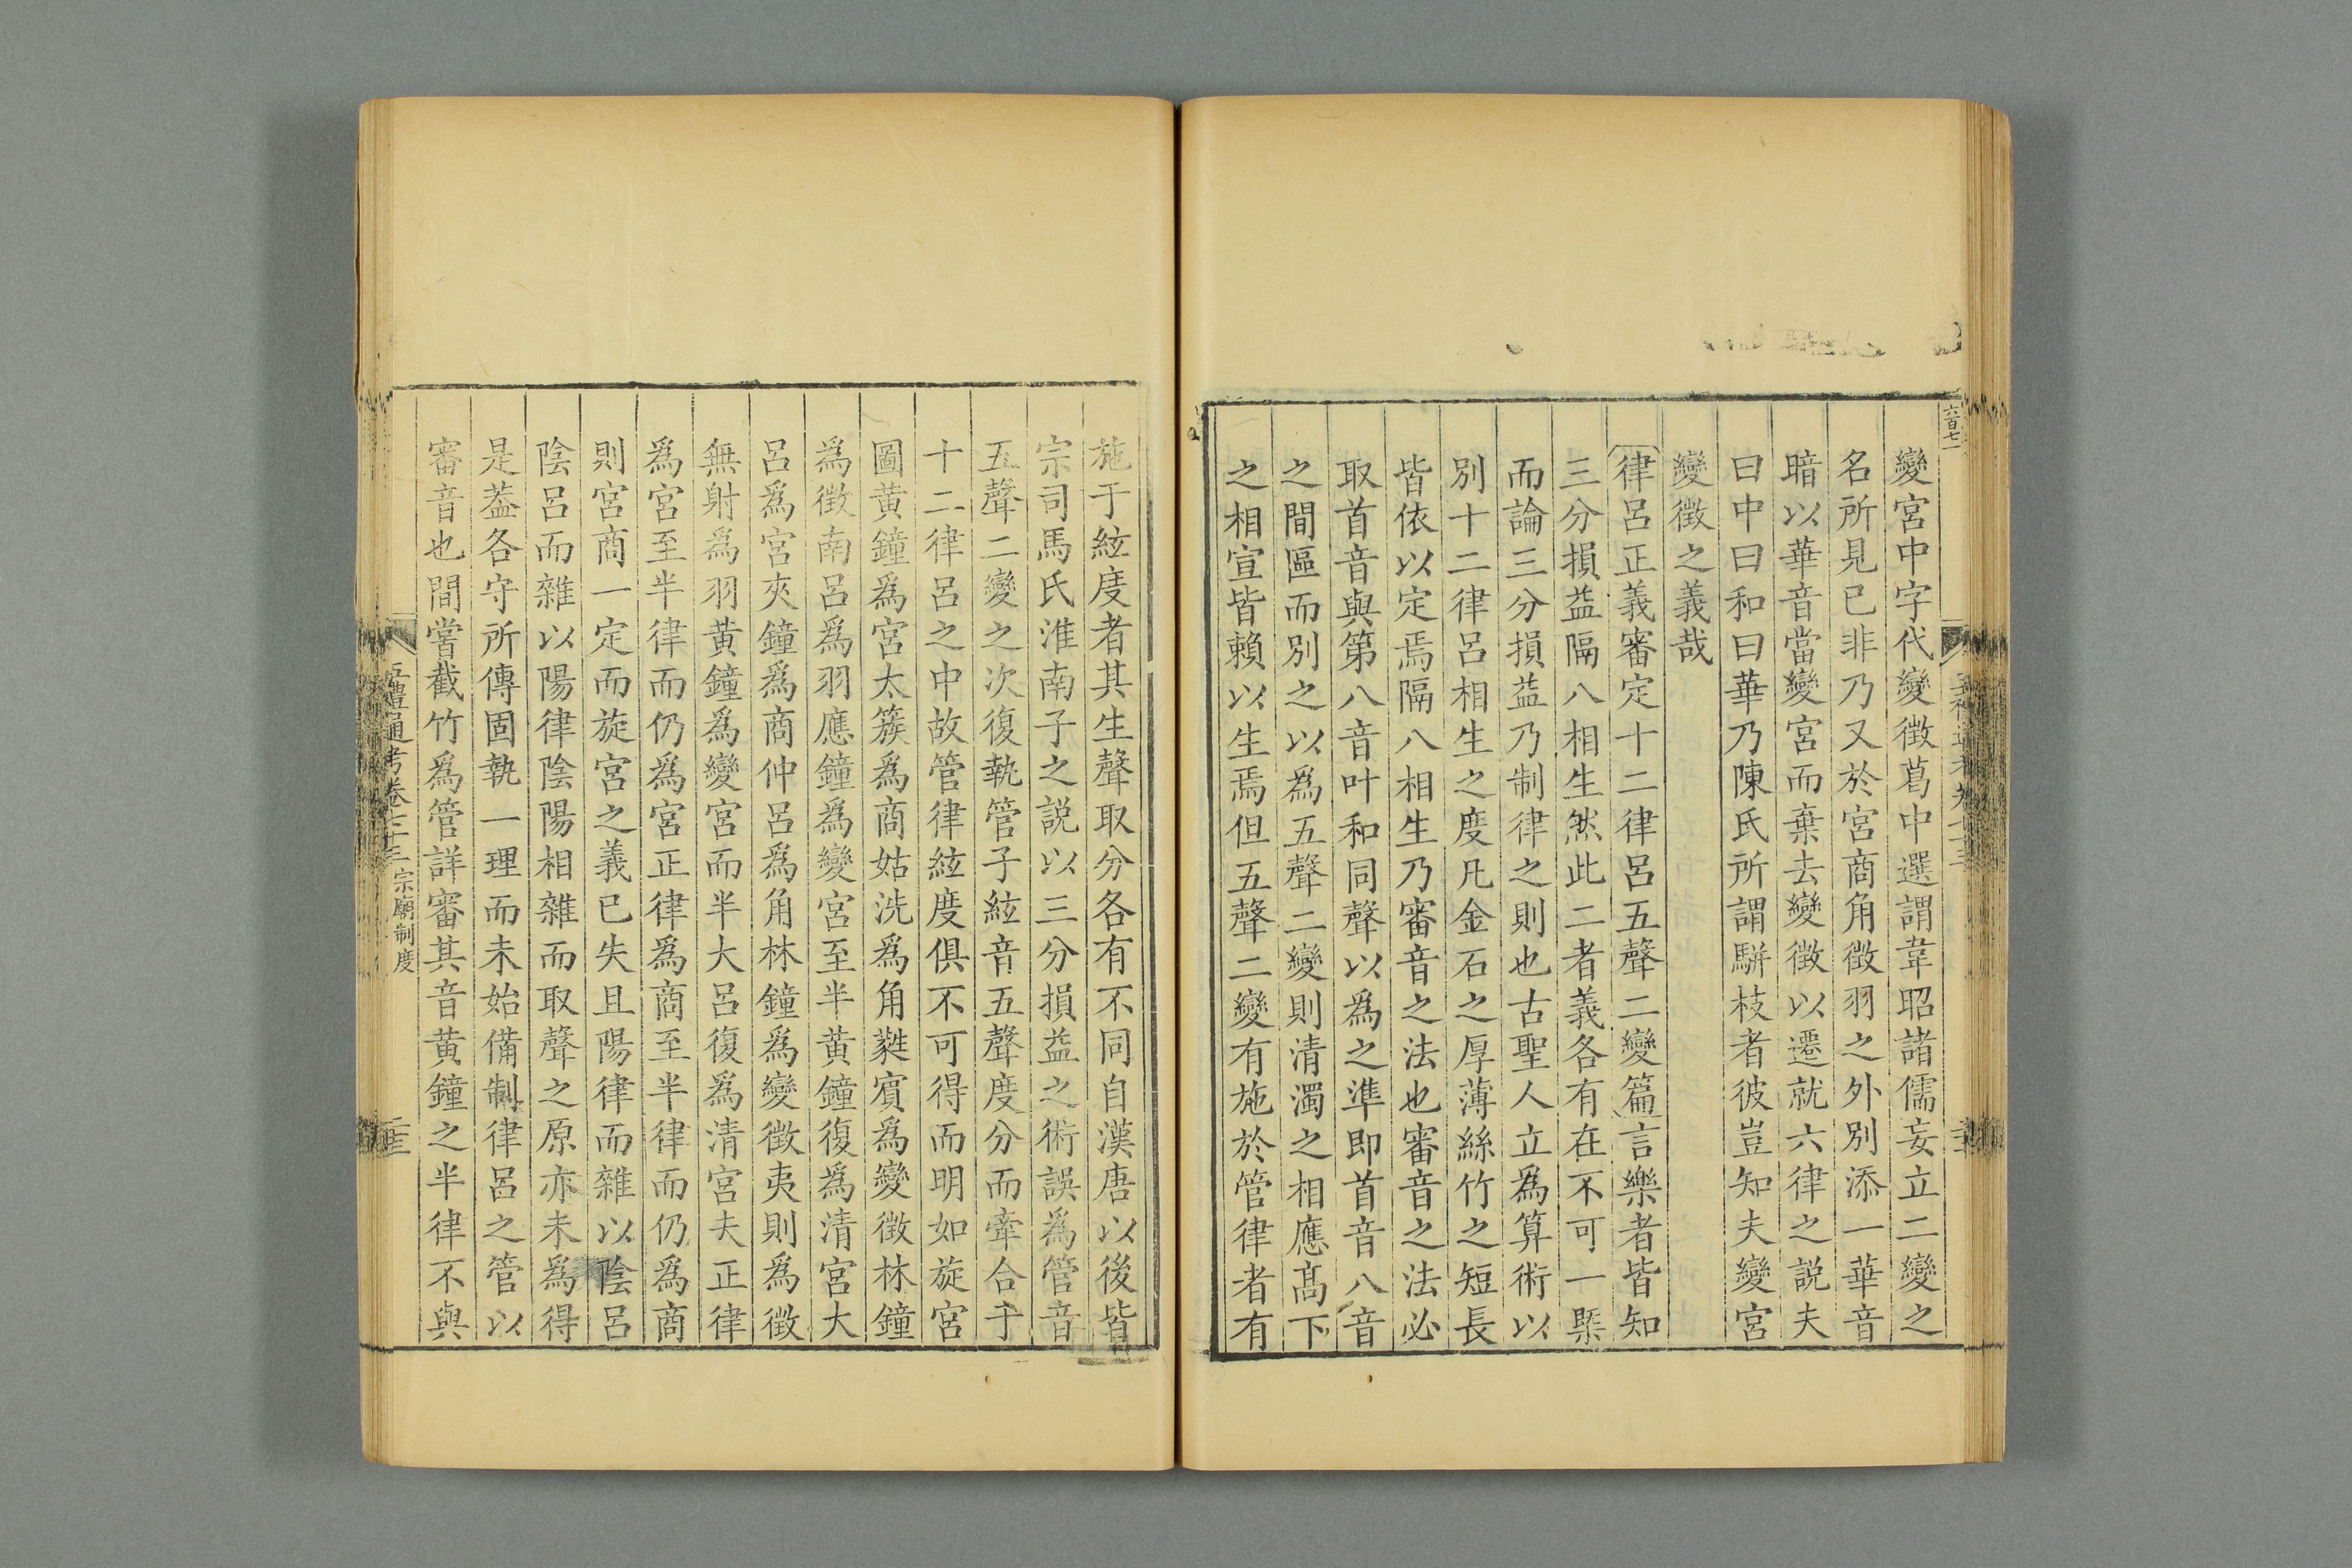 六百七一
變宮中字代變徵葛中選謂韋昭諸儒妄立二變之
名所見已非乃又於宮商角徵羽之外別添一華音
暗以華音當變宮而棄去變徵以遷就六律之説夫
曰中曰和曰華乃陳氏所謂駢枝者彼豈知夫變宮
變徵之義哉
律呂正義審定十二律呂五聲二變篇言樂者皆知
三分損益隔八相生然此二者義各有在不可一槩
而論三分損益乃制律之則也古聖人立爲算術以
別十二律呂相生之度凡金石之厚薄絲竹之短長
皆依以定焉隔八相生乃審音之法也審音之法必
取首音與第八音叶和同聲以爲之準即首音八音
之間區而別之以爲五聲二變則清濁之相應髙下
之相宣皆賴以生焉但五聲二變有施於管律者有
施于絃度者其生聲取分各有不同自漢唐以後皆
宗司馬氏淮南子之説以三分損益之術誤爲管音
五聲二變之次復執管子絃音五聲度分而牽合于
十二律呂之中故管律絃度俱不可得而明如旋宮
圖黄鐘爲宮太簇爲商姑洗爲角蕤賓爲變徵林鐘
爲徵南呂爲羽應鐘爲變宮至半黄鐘復爲清宮大
呂爲宮夾鐘爲商仲呂爲角林鐘爲變徵夷則爲徵
無射爲羽黄鐘爲變宮而半大呂復爲清宮夫正律
爲宮至半律而仍爲宮正律爲商至半律而仍爲商
則宮商一定而旋宮之義已失且陽律而雜以陰呂
陰呂而雜以陽律陰陽相雜而取聲之原亦未爲得
是葢各守所傳固執一理而未始備制律呂之管以
審音也間嘗截竹爲管詳審其音黄鐘之半律不與
五禮通考卷七十三 宗廟制度